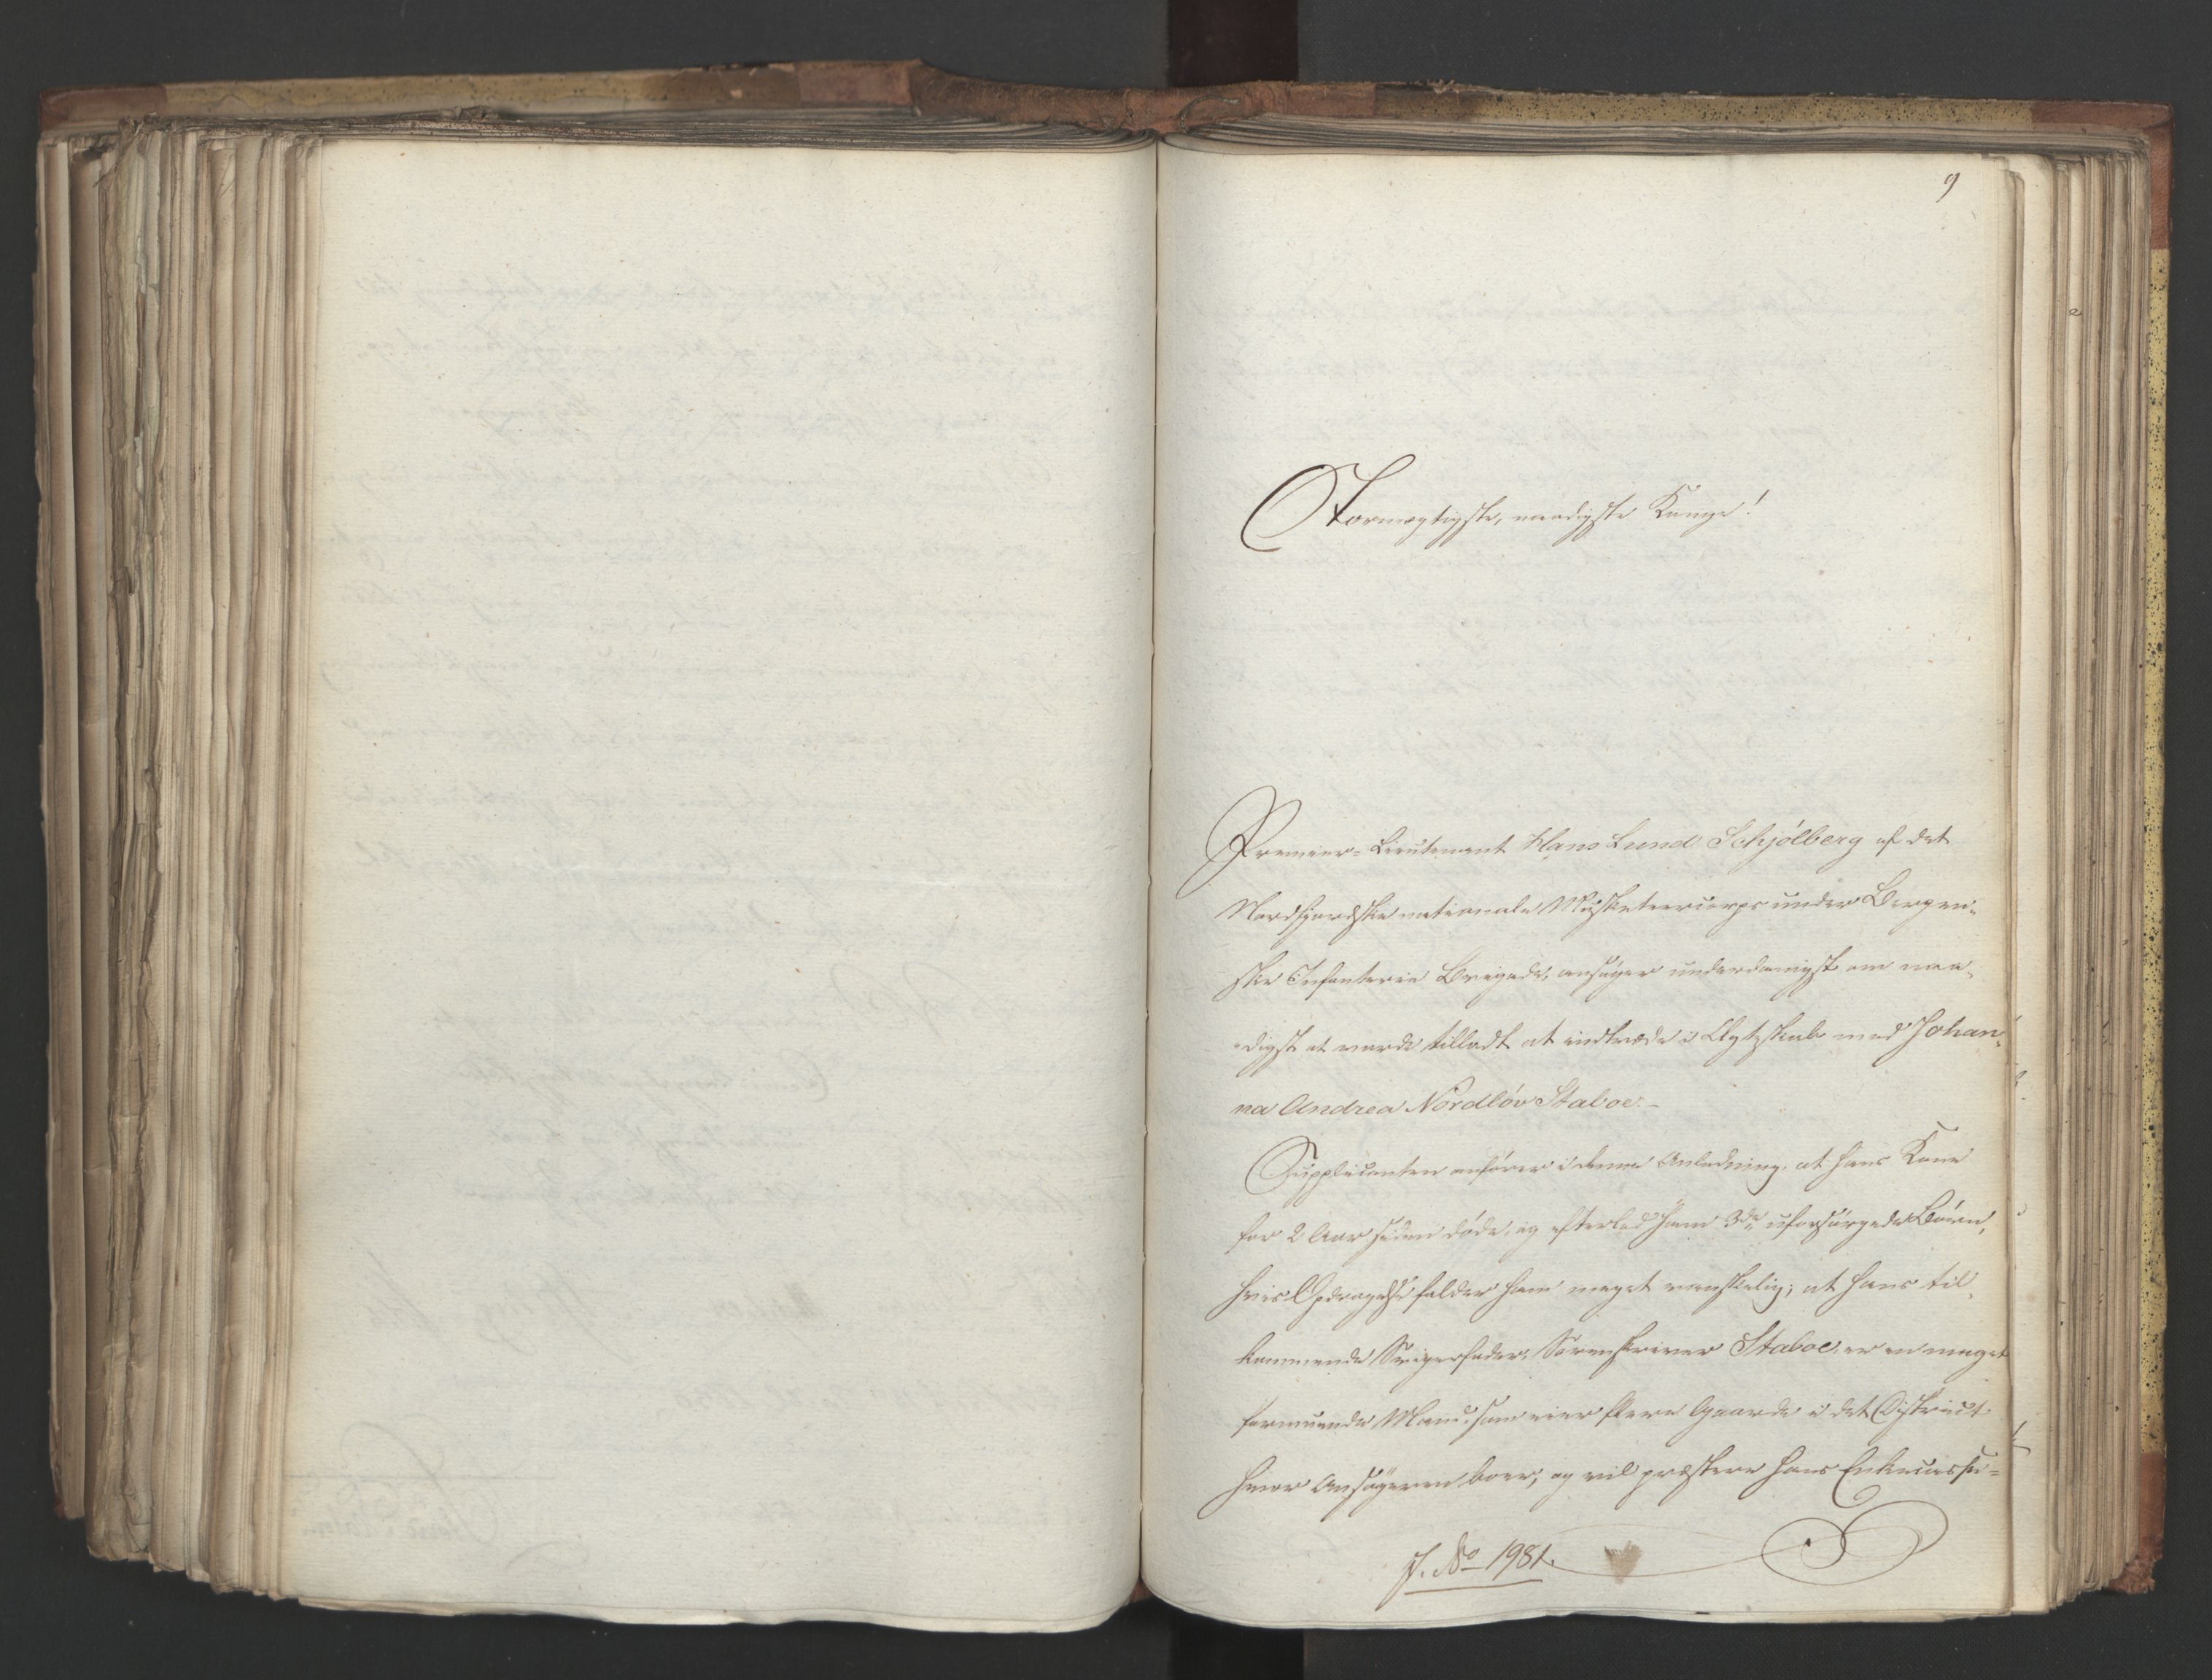 9
Stormægtigste, naadigste Konge!
Premier-Lieutenant Hans Lund Schjölberg af det
Nordfjordske nationale Musketeercorps under Bergen-
ske Infanterie Brigade, ansøger underdanigst om naa-
digst at vorde tilladt at indtræde i Ægteskab med Johan-
na Andrea Nordlöv Staboe.-
Supplicanten anförer i denne Anledning, at hans Kone
for 2 Aar siden döde, og efterlod ham 3de uforsörgede Börn,
hvis Opdragelse falder ham meget vanskelig; at hans til-
kommende Svigerfader, Sorenskriver Staboe, er en meget
formuende Mand, som eier flere Gaarde i det District
hvor Ansögeren boer, og vil præstere hans Enkecasse-
J. No 1981.